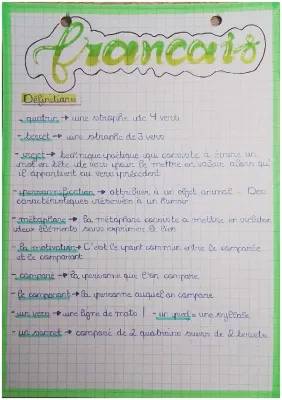 francais
Définitions
- quatrin → une strophe de 4 vers
- tercet → une strophe de 3 vers
- rejet → technique poétique qui consiste à écrire un
mot en tête de vers pour le mettre en valeur alors qu'il
appartient au vers précédent
- personnification → attribuer à un objet animal
caractéristiques réservées à un humain
- métaphore → la métaphore consiste a mettre en relation
deux éléments sans exprimer le lien
- la motivation → C'est le point commun entre le comparée
et le comparant
- comparé → la personne que l'on compare
- le comparant → la personne auquel on compare
- un vers → une ligne de mots ! - un pied = une syllabe
- un sonnet → composé de 2 quatrains suivis de 2 tercets